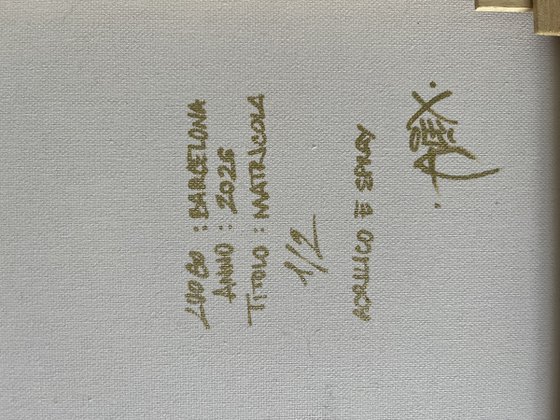 LUOGO : BARCELONA
ANNO : 2026
TITOLO : MATRICOLA
1/2
ACRILICO E SPRAY
ALEX.